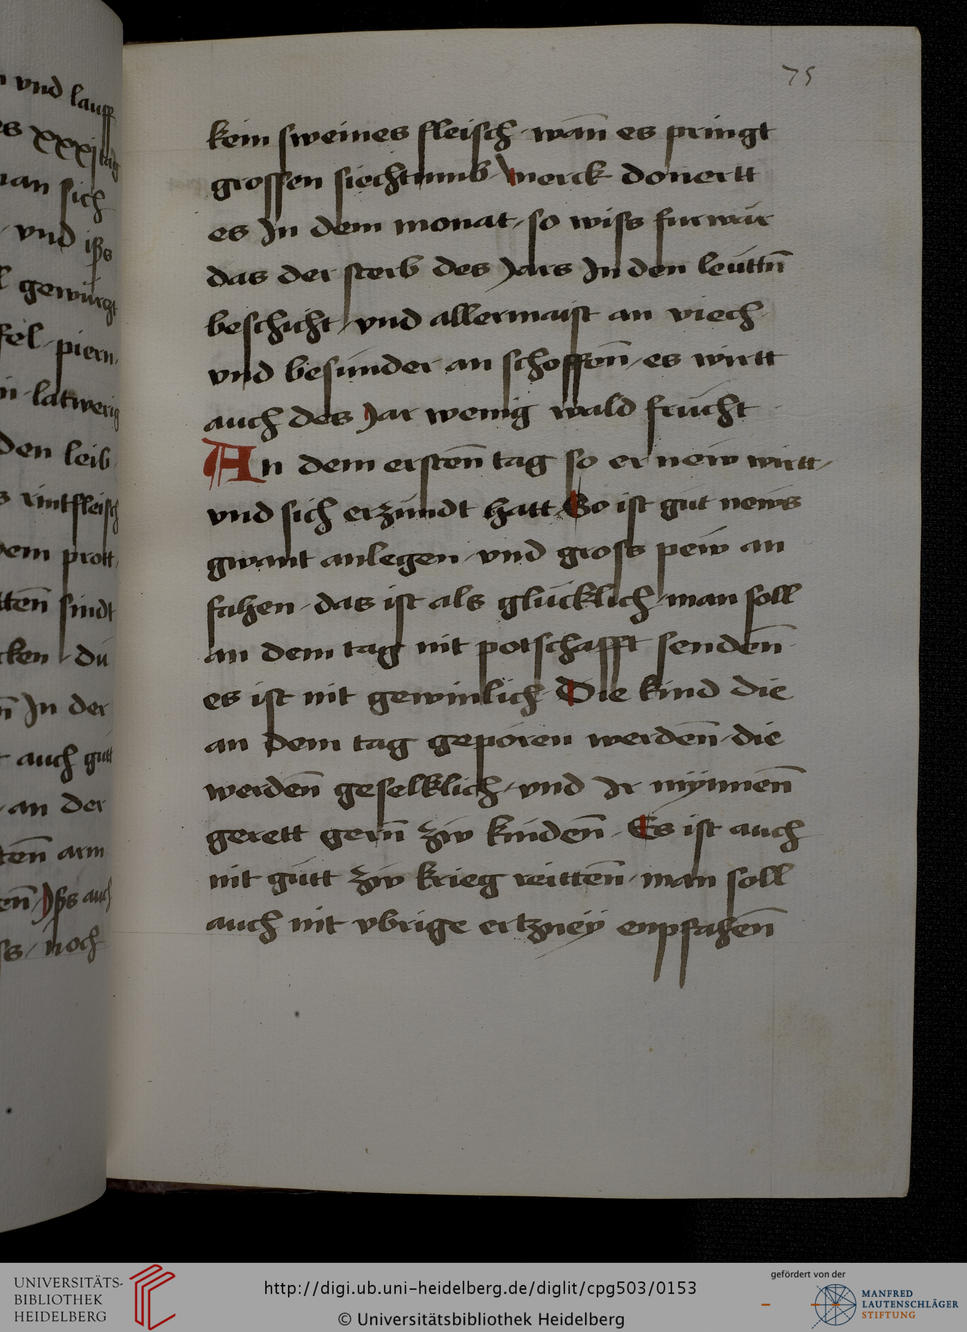 75
kein sweines fleisch · wan̄ es pringt
grossen siechtumb · Merck donertt
es In dem monat / so wiss furwar
das der sterb des Jars In den leuttn̄
beschicht / vnd allermaist an viech
vnd besunder an schoffen̄ / es wirtt
auch des Jar wenig wald frucht
An dem ersten̄ tag so er new wirtt /
vnd sich erzundt hatt So ist gut news
gwant anlegen / vnd gross pew an
fahen / das ist als glücklich / man soll
an dem tag nit potschafft senden̄
es ist nit gewinlich Die kind die
an dem tag geporen werden̄ / die
werden̄ geselklich / vnd Ir mÿnnen̄
gerett gern̄ zw kinden̄ · Es ist auch
nit gutt zw krieg reitten̄ / man soll
auch nit vbrige ertzneÿ enpfahen̄
vnd lauff
es xxxj tag
man sich
/ vnd iſs
gewurgt
piern
latwerig
den leib
rintfleisch
dem prott
sindt
du
In der
auch gutt
an der
arm
Iſs auch
noch
UNIVERSITÄTS-
BIBLIOTHEK
HEIDELBERG
http://digi.ub.uni-heidelberg.de/diglit/cpg503/0153
© Universitätsbibliothek Heidelberg
gefördert von der
MANFRED
LAUTENSCHLÄGER
STIFTUNG